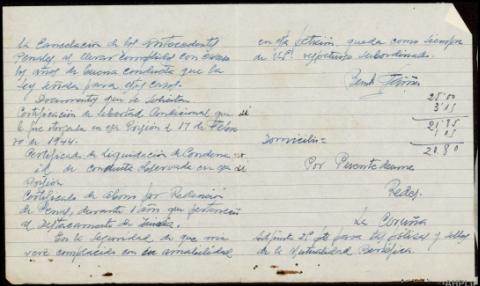 la Cancelación de los Antecedentes
Penales, al llevar cumplidos con exceso
los años de buena conducta que la
Ley señala para estos casos.
Documentos que se solicitan
Certificación de libertad Condicional que
le fue otorgada en esa Prisión el 17 de Febre
ro de 1944.
Certificado de Liquidación de Condena
id. de conducta observada en esa
Prisión
Certificado de abono por Redención
de Penas, durante 1 año que perteneció
al Destacamento de
En la seguridad de que me
veré complacido en la amabilidad
en esta petición, queda como siempre
de Vd. respetuoso subordinado.
25'00
3'15
21'85
1'05
20'80
Domicilio =
Por Puentedeume
Redes.
La Coruña
Adjunto pta para las pólizas y sellos
de la Mutualidad Benéfica.